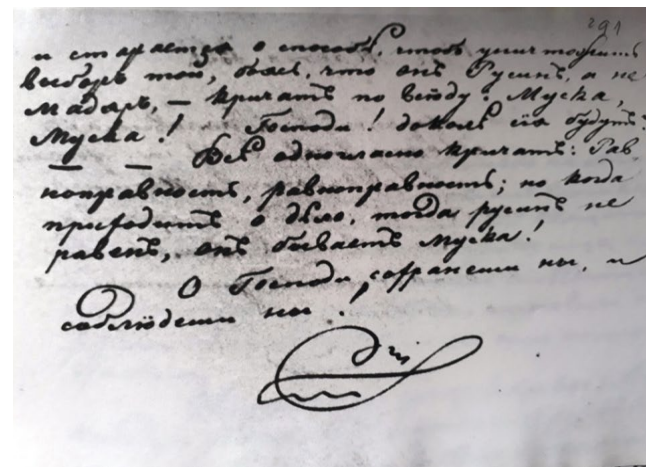 291
и старается о способѣ, чтобъ уничтожить
выборъ той, бо, что онъ Русинъ, а не
Мадяръ, — кричатъ по всюду: Муска,
Муска! Господи! доколѣ сія будутъ?
— — Всѣ одногласно кричатъ: Рав
ноправность, равноправность; но когда
приходитъ о дѣло, тогда русинъ не
равенъ, онъ бываетъ Муска!
О Господи, сохраниши ны, и
соблюдеши ны!